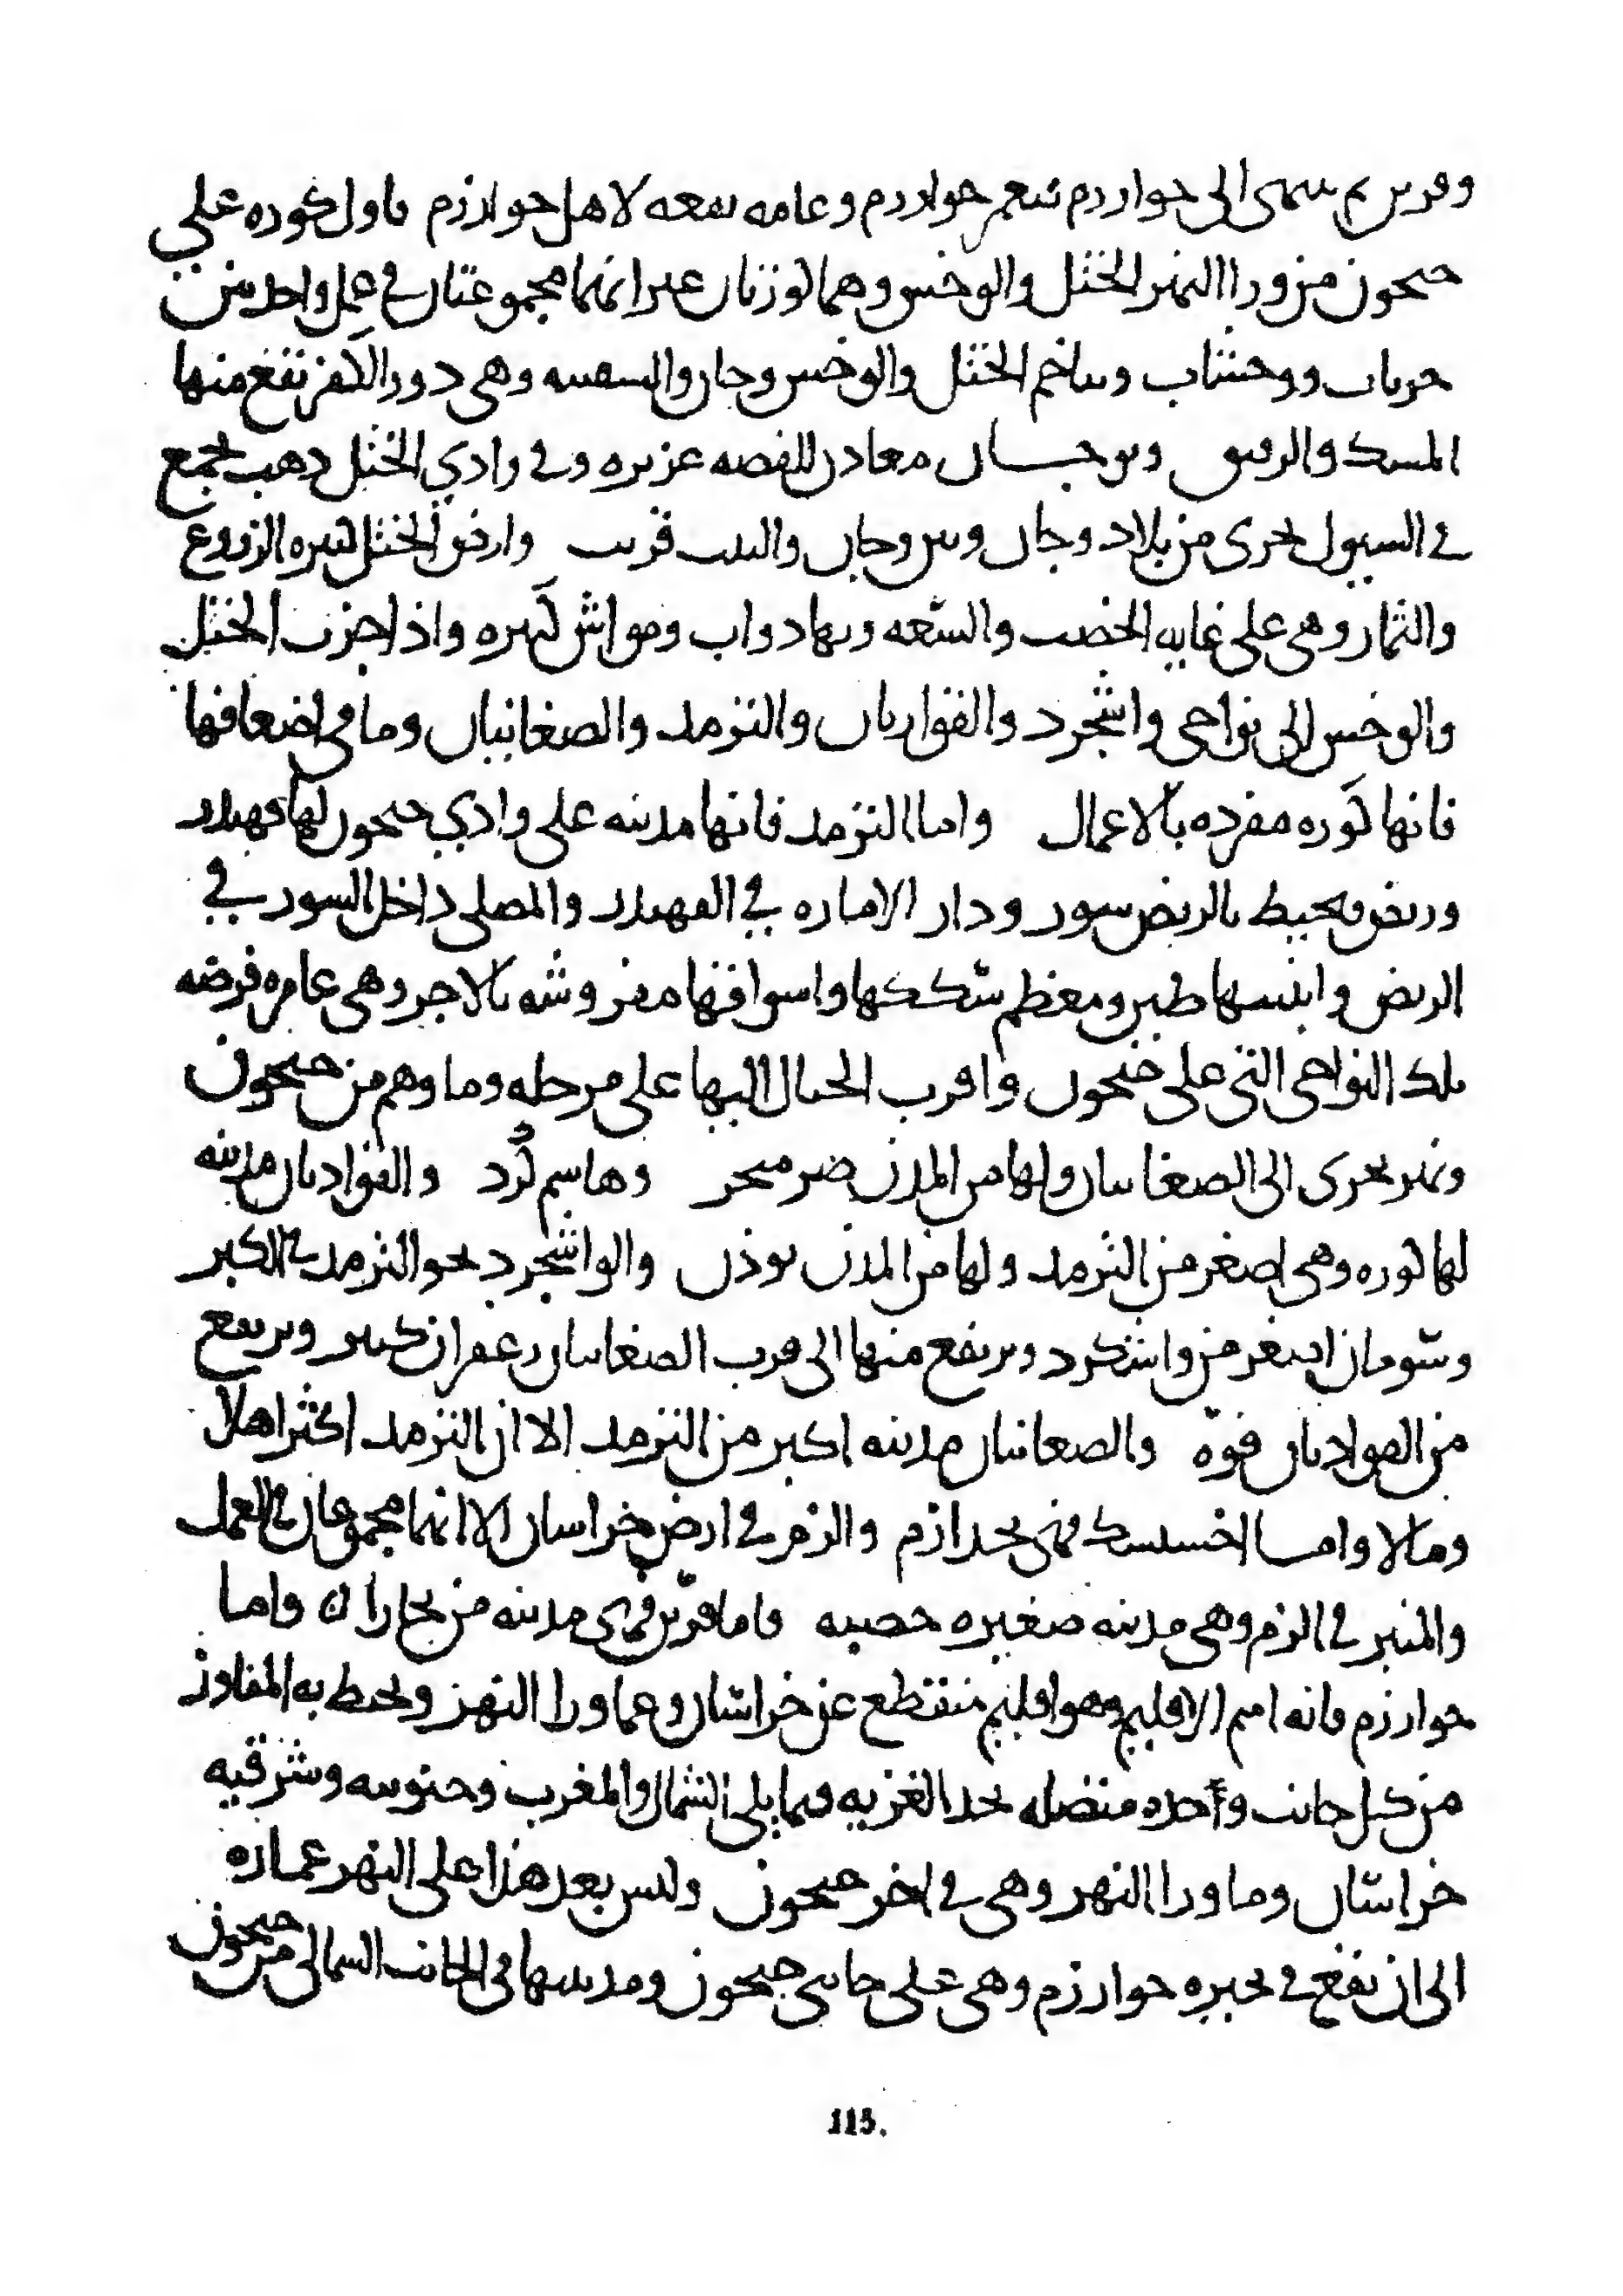 وفربر ثم ينتهى الى خوارزم فيعمر خوارزم وعامه نفعه لاهل خوارزم فاول كوره على
جيحون من ورا النهر الختل والوخش وهما كورتان غير انهما مجموعتان في عمل واحد بين
جرياب ووخشاب ويتاخم الختل والوخش وجان والسقينه وهى دور الكفر تقع منها
المسك والرقيق وبوجـــان معادن للفضه غزيره وفي وادي الختل ذهب يجمع
في السيول يجرى من بلاد وجان وبين وجان والتبت قريب وارض الختل كثيره الزروع
والثمار وهى على غايه الخصب والسعه وبها دواب ومواش كثيره واذا جزت الختل
والوخش الى نواحى واشجرد والقواديان والترمذ والصغانيان وما في اضعافها
فانها كوره مفرده بالاعمال واما الترمذ فانها مدينه على وادي جيحون لها قهندز
وربض ويحيط بالربض سور ودار الاماره في القهندز والمصلى داخل السور في
الربض وابنيتها طين ومعظم سككها واسواقها مفروشه بالاجر وهى عامره فرضه
تلك النواحى التى على جيحون واقرب الجبال اليها على مرحله وماوهم من جيحون
ونهر يجرى الى الصغانيان ولها من المدن صرمنجر وهاسم كُرد والقواديان مدينه
لها كوره وهى اصغر من الترمذ ولها من المدن نوذن والواشجرد نحو الترمذ في الكبر
وشومان اصغر من واشكرد ويرتفع منها الى قرب الصغانيان زعفران كثير ويرتفع
من القواديان فوّه والصغانيان مدينه اكبر من الترمذ الا ان الترمذ اكثر اهلا
ومالا وامـا اخسيسك فهى بحد ازم والزم في ارض خراسان الا انهما مجموعان في العمل
والمنبر في الزم وهى مدينه صغيره خصبه فاما فربر فهى مدينه من بخارا ن واما
خوارزم فانه اسم الاقليم وهو اقليم منقطع عن خراسان وعما ورا النهر ويحيط به المفاوز
من كل جانب وأحده متصله بحد الغزيه فيما يلى الشمال والمغرب وجنوبيه وشرقيه
خراسان وما ورا النهر وهى في اخر جيحون وليس بعد هذا على النهر عماره
الى ان يقع في بحيره خوارزم وهى على جانبى جيحون ومدينتها في الجانب الشمالى من جيحون
115.